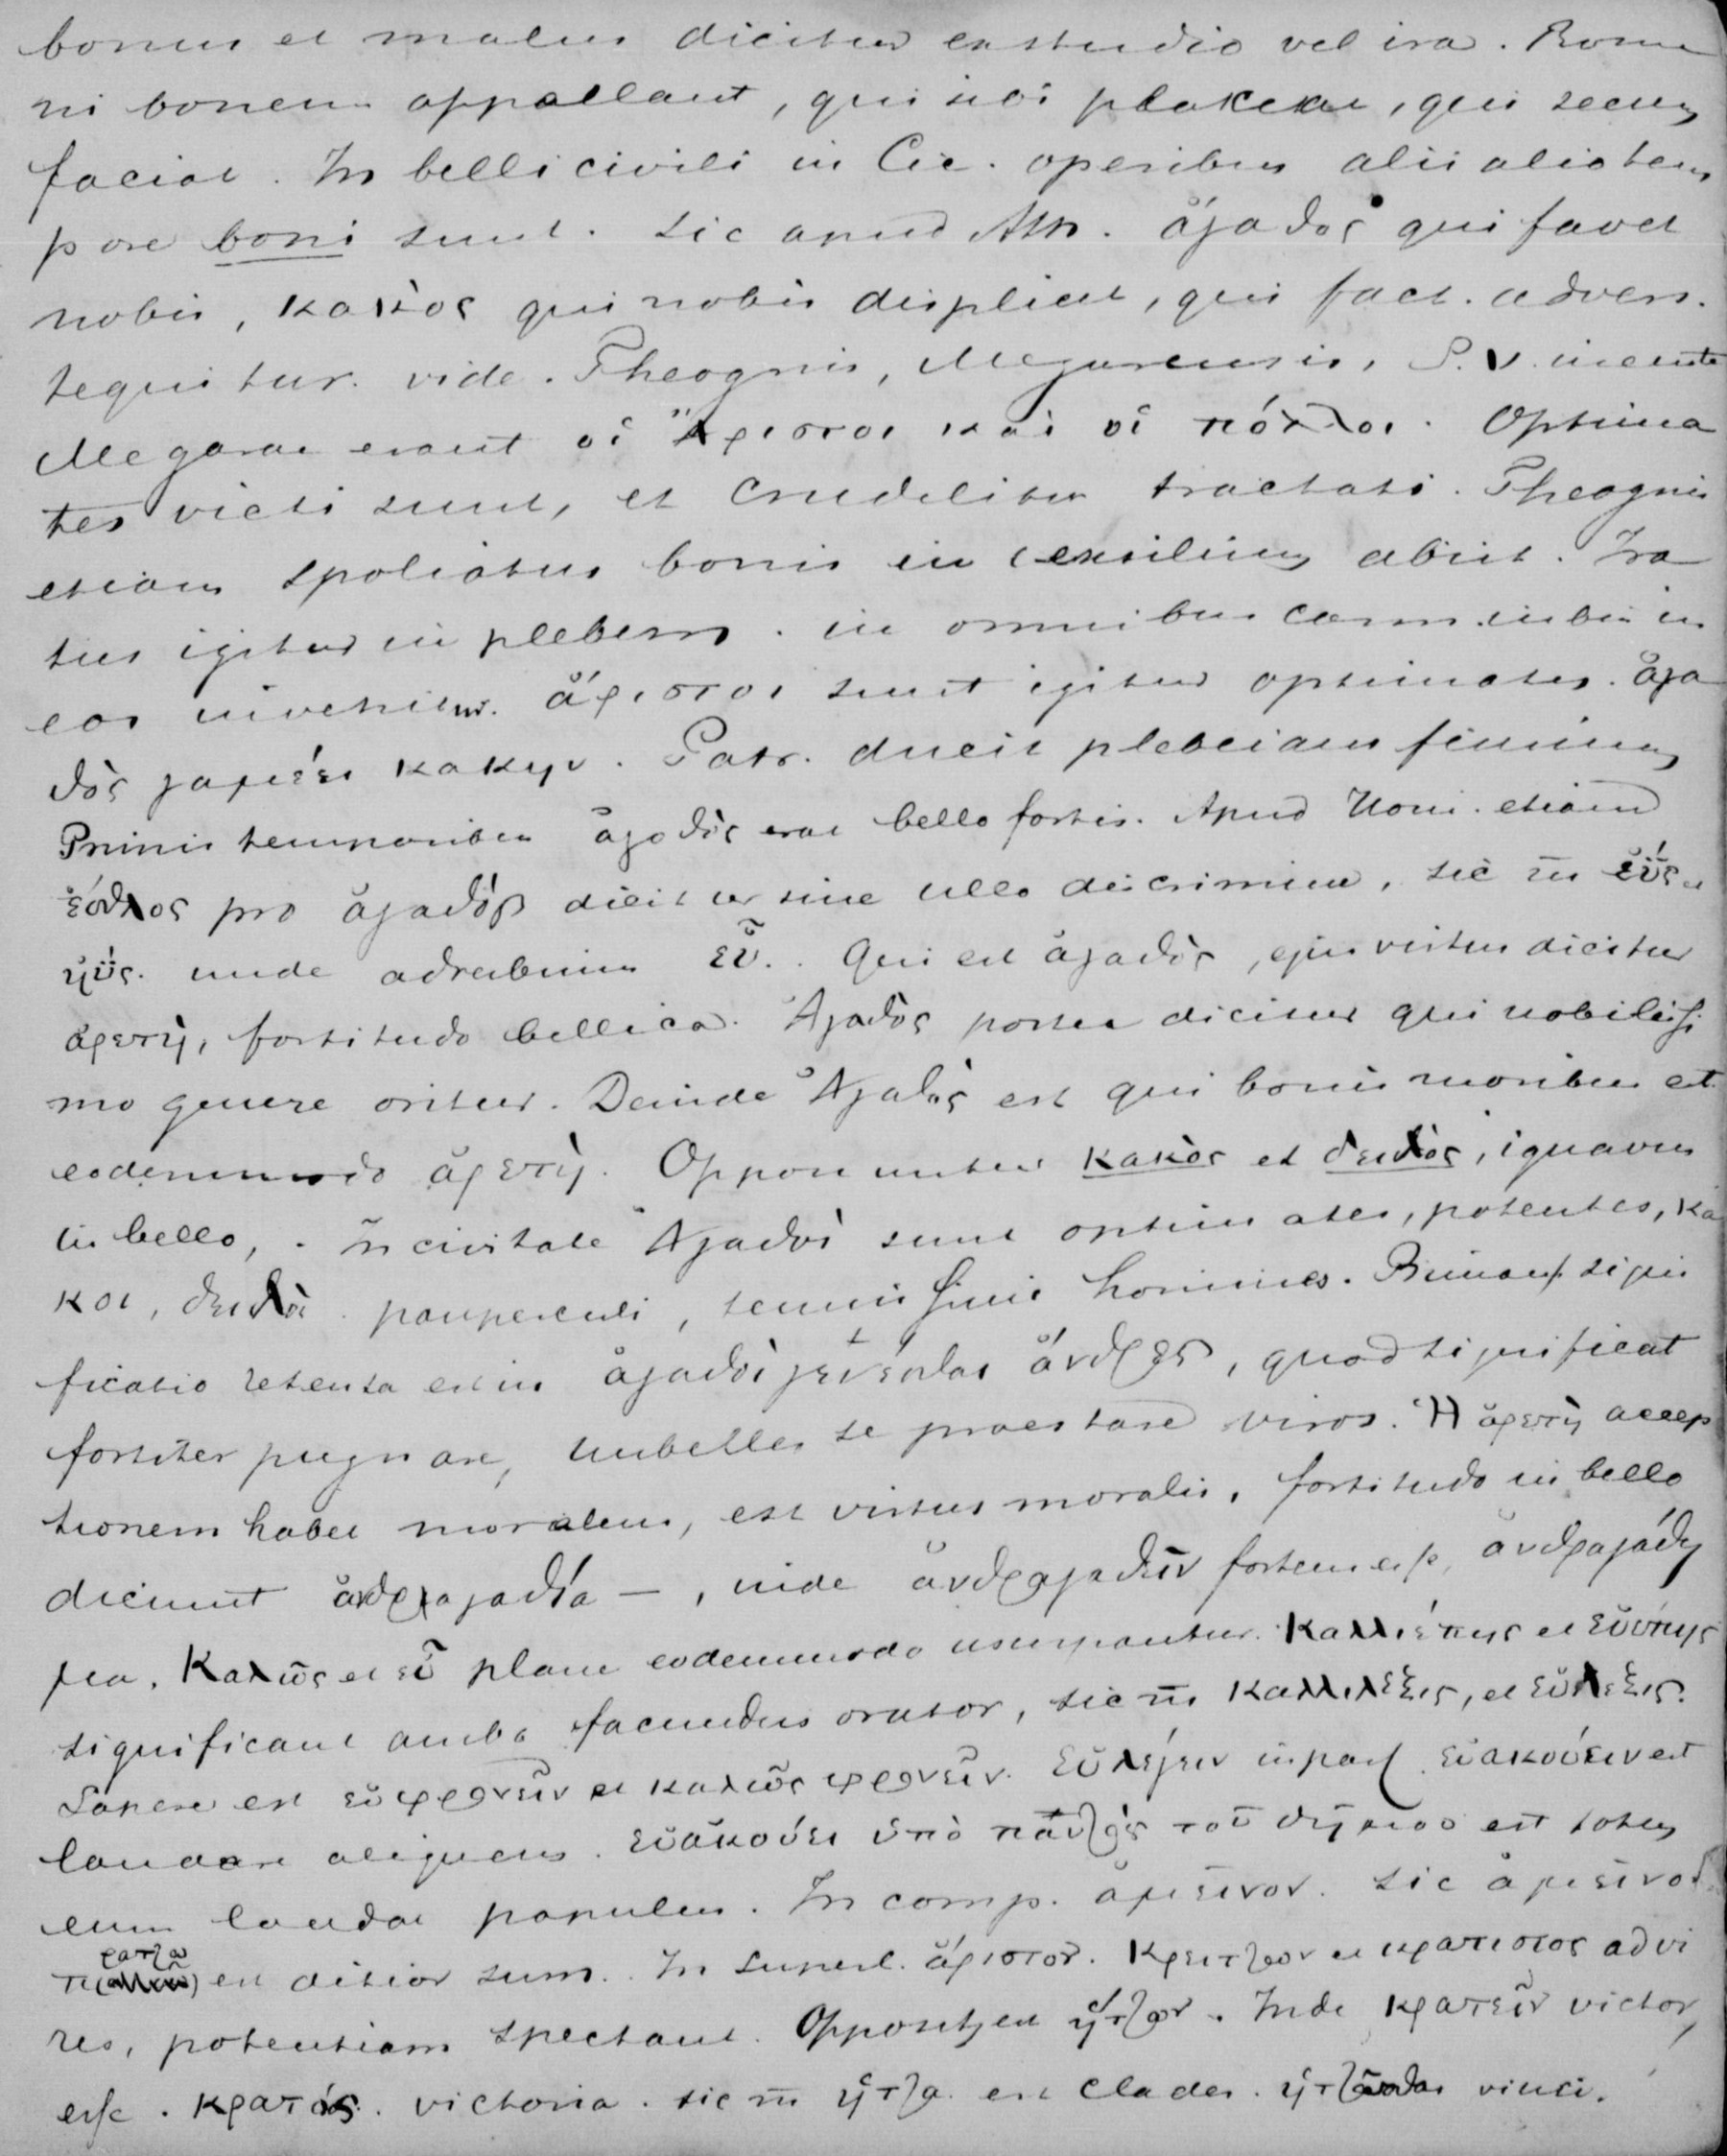 bonus et malus dicitur ex studio vel ira. Roma
ni bonum appellant, qui sibi placeat, qui secum
faciat. In belli civili in Cic. operibus alii alio tem
pore boni sunt. Sic apud Ath. ἀγαθὸς qui favet
nobis, κακὸς qui nobis displicet, qui fact. advers.
sequitur. vide. Theognis, Megarensis, S. V. ineunte
Megarae erant οἱ ἄριστοι καὶ οἱ πόλλοι. Optima
tes victi sunt, et crudeliter tractati. Theognis
etiam spoliatus bonis in exsilium abiit. Ira
tus igitur in plebem. in omnibus carminibus in
eos invehitur. ἄριστοι sunt igitur optimates. ἀγα
θὸς γαμέει κακην. Patr. ducit plebeiam feminam
Primis temporibus ἀγαθὸς erat bello fortis. Apud Hom. etiam
ἐσθλος pro ἀγαθὸς dicitur sine ullo discrimine, sic m ἐΰς et
ηΰς. unde adverbium εὖ. Qui est ἀγαθὸς, ejus virtus dicitur
ἀρετὴ, fortitudo bellica. Ἀγαθὸς postea dicitur qui nobilissi
mo genere oritur. Deinde Ἀγαθὸς est qui bonis moribus est
eodem modo ἀρετὴ. Opponuntur κακὸς et δειλὸς, ignavus
in bello, . In civitate Ἀγαθοὶ sunt optimates, potentes, κα
κοι, δειλοὶ pauperculi, tenuissimi homines. Primaria signi
ficatio retenta est in ἀγαθοὶ γενέσθαι ἄνδρες, quod significat
fortiter pugnare, imbelles se praestare viros. Ἡ ἀρετὴ accep
tionem habet moralem, est virtus moralis, fortitudo in bello
dicunt ἀνδραγαθία —, inde ἀνδραγαθεῖν fortem esse, ἀνδραγάθη
μα. Καλῶς et εὖ plane eodem modo usurpantur. Καλλιέπης et εὐέπης
significant ambo facundus orator, sic m καλλιλέξις, et εὐλεξις.
Sapere est εὐφρονεῖν et καλῶς φρονεῖν. Εὐλέγειν in pass. εὐακούειν est
laudare aliquem. Εὐακούει ὑπὸ παντὸς τοῦ δήμου est totus
eum laudat populus. In comp. ἀμείνον. Sic ἀμείνον
πρατζω est ditior sum. In superl. ἄριστον. Κρειτζον et κρατιστος ad vi
res, potentiam spectant. Oppositum est ἥτζον. Inde κρατεῖν victor
esse. κρατός victoria. sic m ἥτζα est clades. ἡτζᾶσθαι vinci.